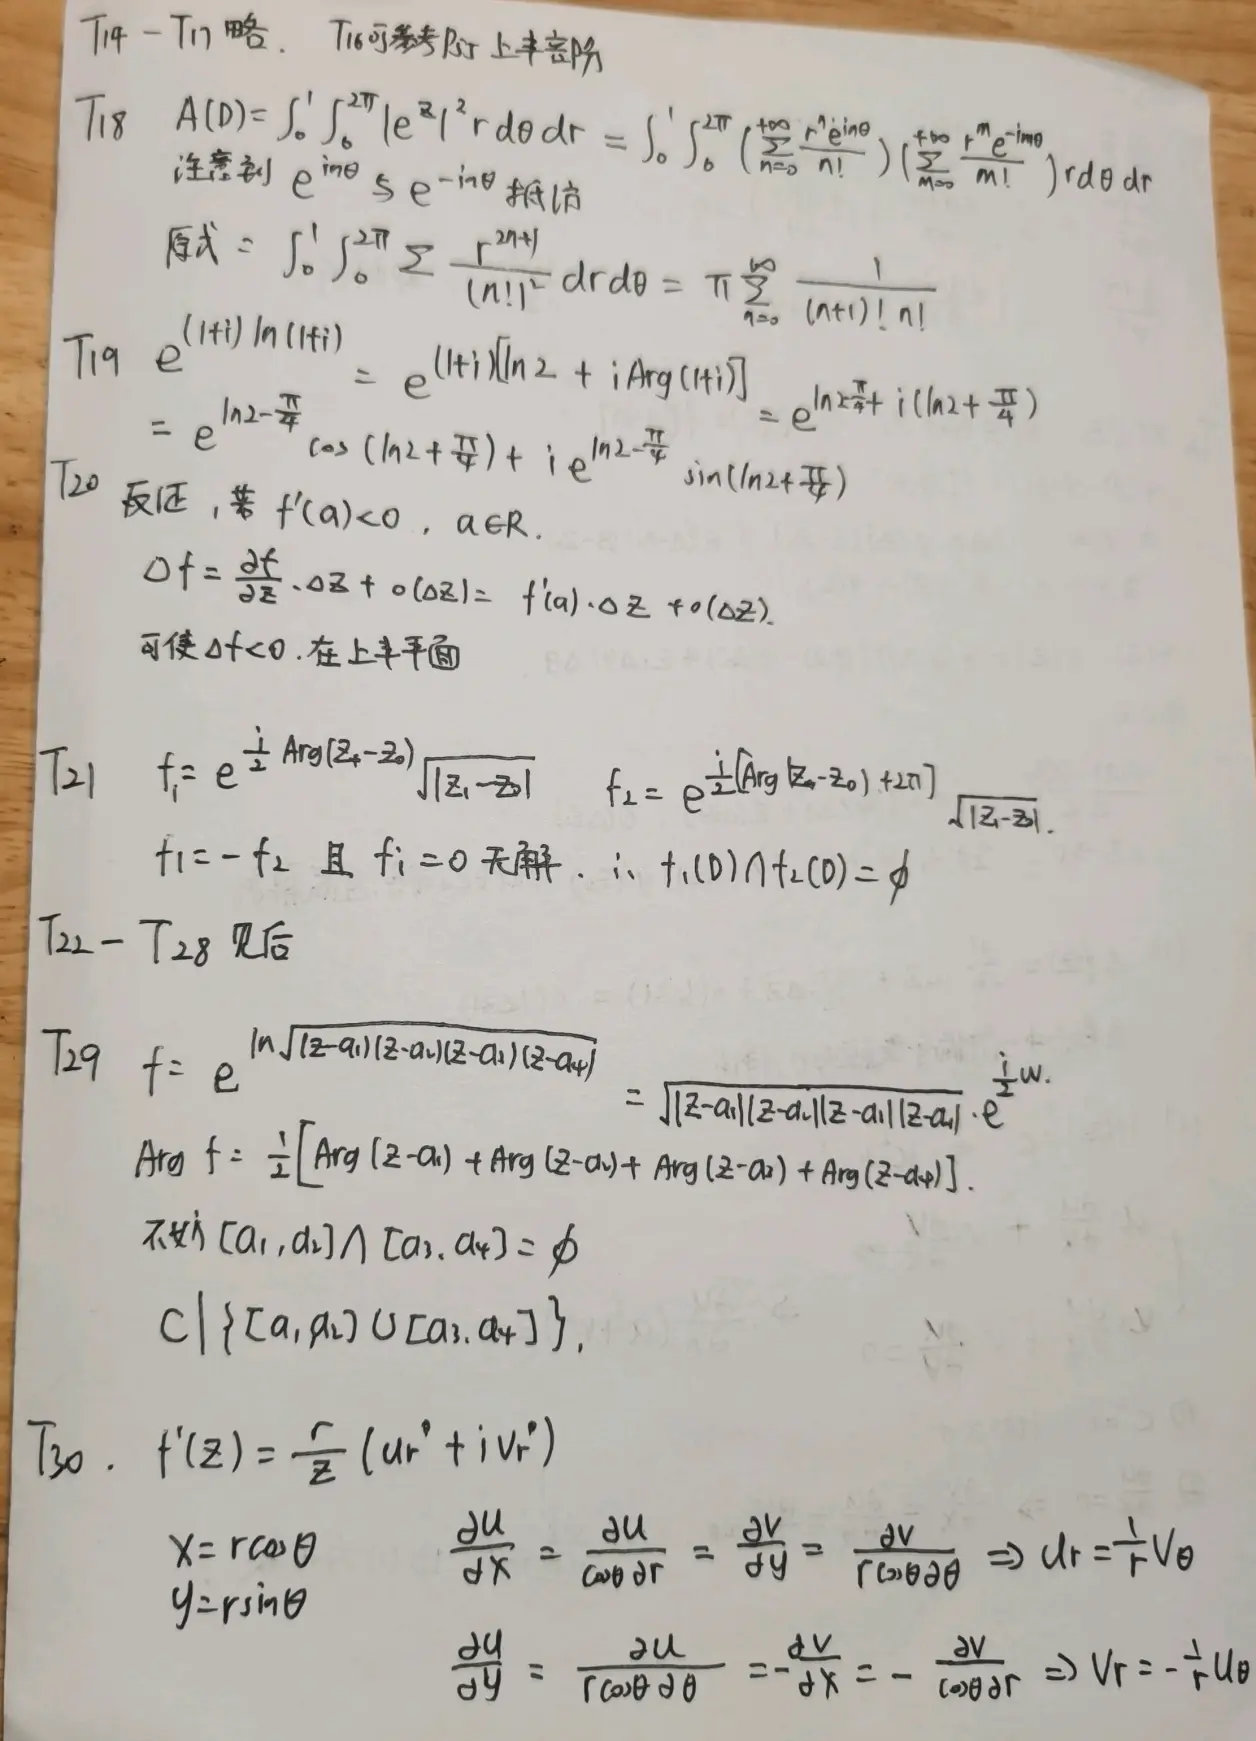 T14 - T17 略. T16可参考P57 上半部阶
T18 A(D)= ∫₀¹ ∫₀^{2π} |e^z|² r dθ dr = ∫₀¹ ∫₀^{2π} (∑_{n=0}^{+∞} r^n e^{inθ}/n!) (∑_{m=0}^{+∞} r^m e^{-imθ}/m!) r dθ dr
注意到 e^{inθ} 与 e^{-inθ} 抵消
原式 = ∫₀¹ ∫₀^{2π} ∑ r^{2n+1}/(n!)² dr dθ = π ∑_{n=0}^{∞} 1/((n+1)! n!)
T19 e^{(1+i) ln(1+i)} = e^{(1+i)[ln2 + i Arg(1+i)]} = e^{ln2 π/4 + i(ln2 + π/4)}
= e^{ln2 - π/4} cos(ln2 + π/4) + i e^{ln2 - π/4} sin(ln2 + π/4)
T20 反证, 若 f'(a)<0, a∈R.
Δf = ∂f/∂z · Δz + o(Δz) = f'(a)·Δz + o(Δz).
可使 Δf<0. 在上半平面
T21 f₁ = e^{i/2 Arg(z₁-z₀)} √|z₁-z₀| f₂ = e^{i/2 [Arg(z₁-z₀)+2π]} √|z₁-z₀|.
f₁ = -f₂ 且 fᵢ = 0 无解. ∴ f₁(D)∩f₂(D) = ∅
T22 - T28 见后
T29 f = e^{ln√(z-a₁)(z-a₂)(z-a₃)(z-a₄)} = √|z-a₁||z-a₂||z-a₁||z-a₄| · e^{i/2 w}.
Arg f = 1/2 [Arg(z-a₁) + Arg(z-a₂) + Arg(z-a₃) + Arg(z-a₄)].
不妨 [a₁, a₂] ∩ [a₃, a₄] = ∅
C|{[a₁, a₂] ∪ [a₃, a₄]}.
T30. f'(z) = r/z (ur + ivr)
x = rcosθ ∂u/∂x = ∂u/cosθ∂r = ∂v/∂y = ∂v/rcosθ∂θ ⇒ ur = 1/r vθ
y = rsinθ
∂u/∂y = ∂u/rcosθ∂θ = -∂v/∂x = -∂v/cosθ∂r ⇒ vr = -1/r uθ